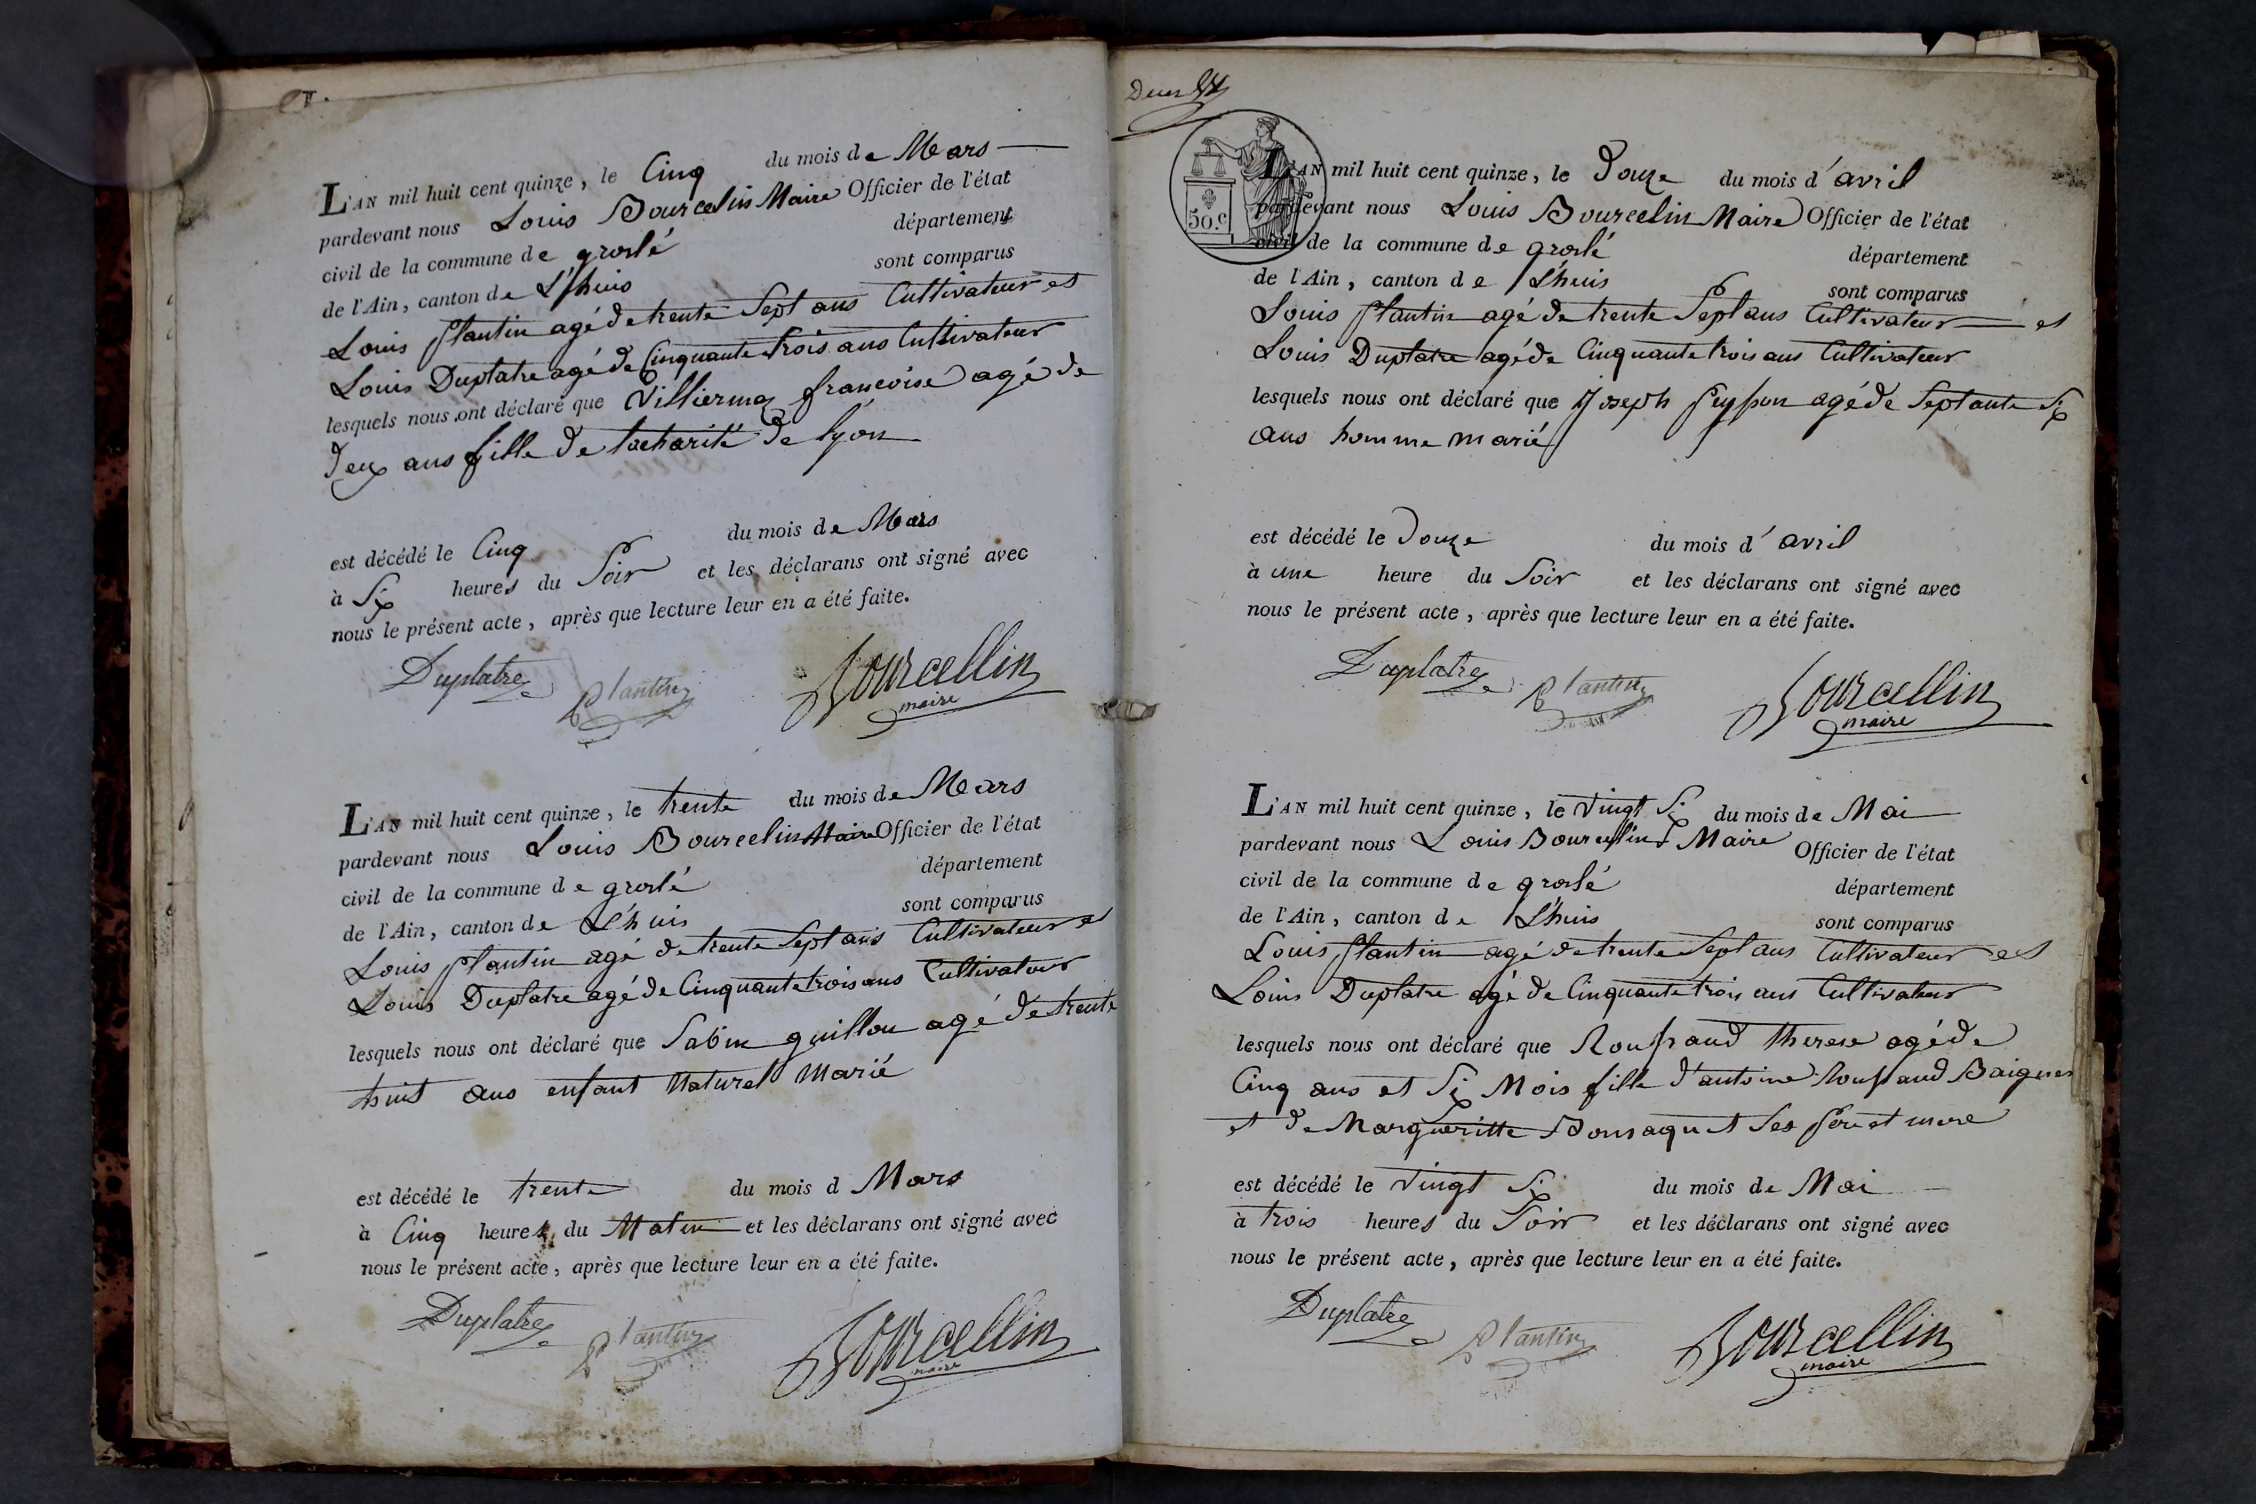 L'AN mil huit cent quinze, le Cinq du mois de Mars
pardevant nous Louis Bourcelin Maire Officier de l'état
civil de la commune de groslé département
de l'Ain, canton de L'huis sont comparus
Louis plantin agé de trente Sept ans Cultivateur et
Louis Duplatre agé de Cinquante trois ans Cultivateur
lesquels nous ont déclaré que Villiermoz francoise agé de
Deux ans fille de la charité de lyon
est décédé le Cinq du mois de Mars
à Six heures du Soir et les déclarans ont signé avec
nous le présent acte, après que lecture leur en a été faite.
Duplatre Plantin Bourcellin
maire
L'AN mil huit cent quinze, le trente du mois de Mars
pardevant nous Louis Bourcelin Maire Officier de l'état
civil de la commune de groslé département
de l'Ain, canton de L'huis sont comparus
Louis plantin agé de trente Sept ans Cultivateur et
Louis Duplatre agé de Cinquante trois ans Cultivateur
lesquels nous ont déclaré que Sabin guillou agé de trente
huit ans enfant Naturel marié
est décédé le trente du mois d Mars
à Cinq heures du Matin et les déclarans ont signé avec
nous le présent acte, après que lecture leur en a été faite.
Duplatre Plantin Bourcellin
maire
50.c
L'AN mil huit cent quinze, le Douze du mois d'avril
pardevant nous Louis Bourcelin Maire Officier de l'état
civil de la commune de groslé département
de l'Ain, canton de L'huis sont comparus
Louis plantin agé de trente Sept ans Cultivateur et
Louis Duplatre agé de Cinquante trois ans Cultivateur
lesquels nous ont déclaré que Joseph peysson agé de Septante Six
ans homme marié
est décédé le Douze du mois d'avril
à une heure du Soir et les déclarans ont signé avec
nous le présent acte, après que lecture leur en a été faite.
Duplatre Plantin Bourcellin
maire
L'AN mil huit cent quinze, le Vingt Six du mois de Mai
pardevant nous Louis Bourcelin Maire Officier de l'état
civil de la commune de groslé département
de l'Ain, canton de L'huis sont comparus
Louis plantin agé de trente Sept ans Cultivateur et
Louis Duplatre agé de Cinquante trois ans Cultivateur
lesquels nous ont déclaré que Roussaud therese agé de
Cinq ans et Six Mois fille d'antoine Roussaud
et de Margueritte Bonsaquet Ses pere et mere
est décédé le Vingt Six du mois de Mai
à trois heures du Soir et les déclarans ont signé avec
nous le présent acte, après que lecture leur en a été faite.
Duplatre Plantin Bourcellin
maire